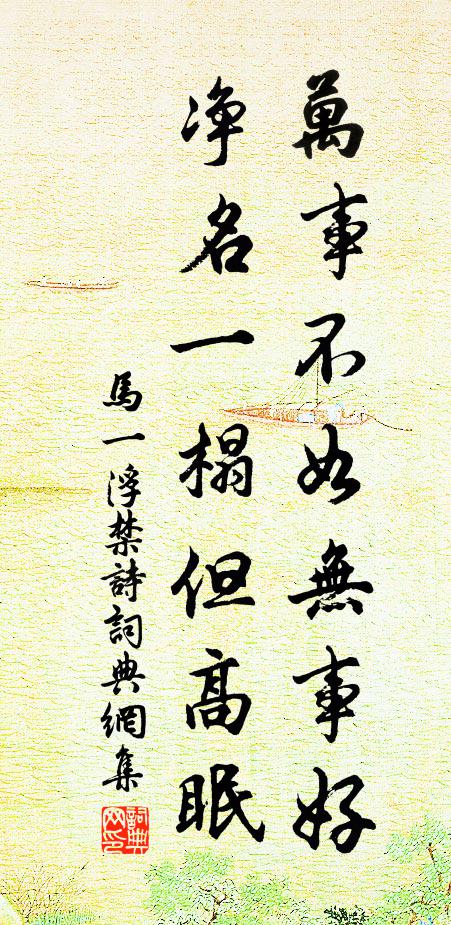 萬事不如無事好
净名一榻但高眠
馬一浮禁詩詞典網集
詞典网印